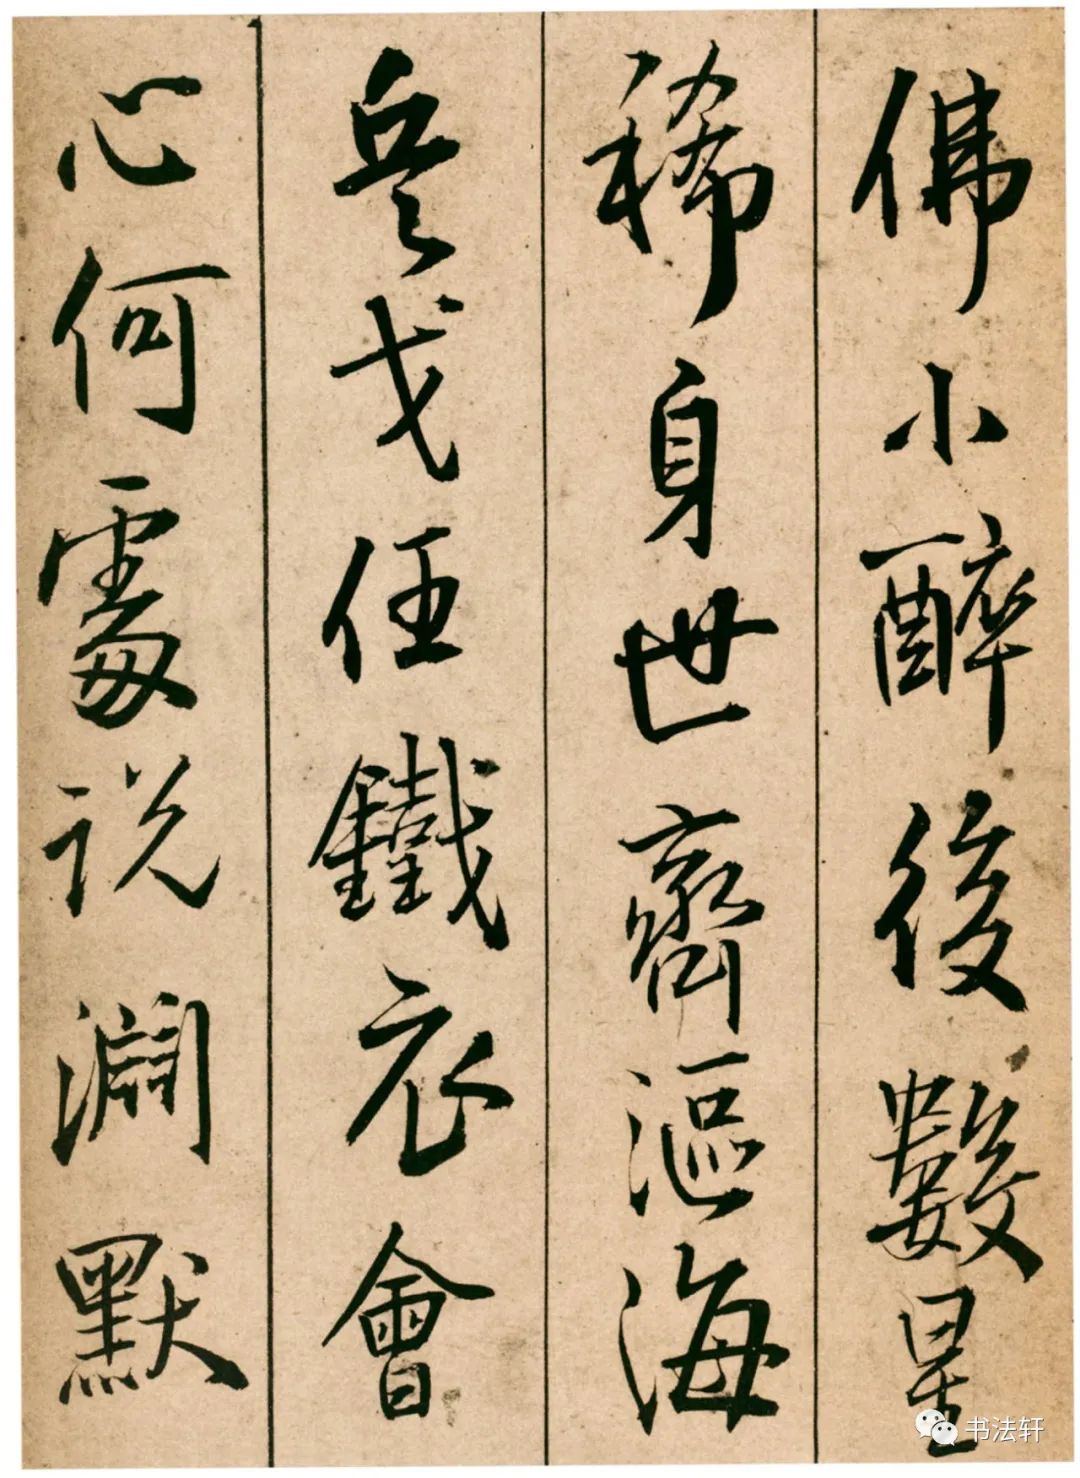 佛小醉後數星
稀身世齊漚海
兵戈任鐵衣會
心何處說淵默
书法轩